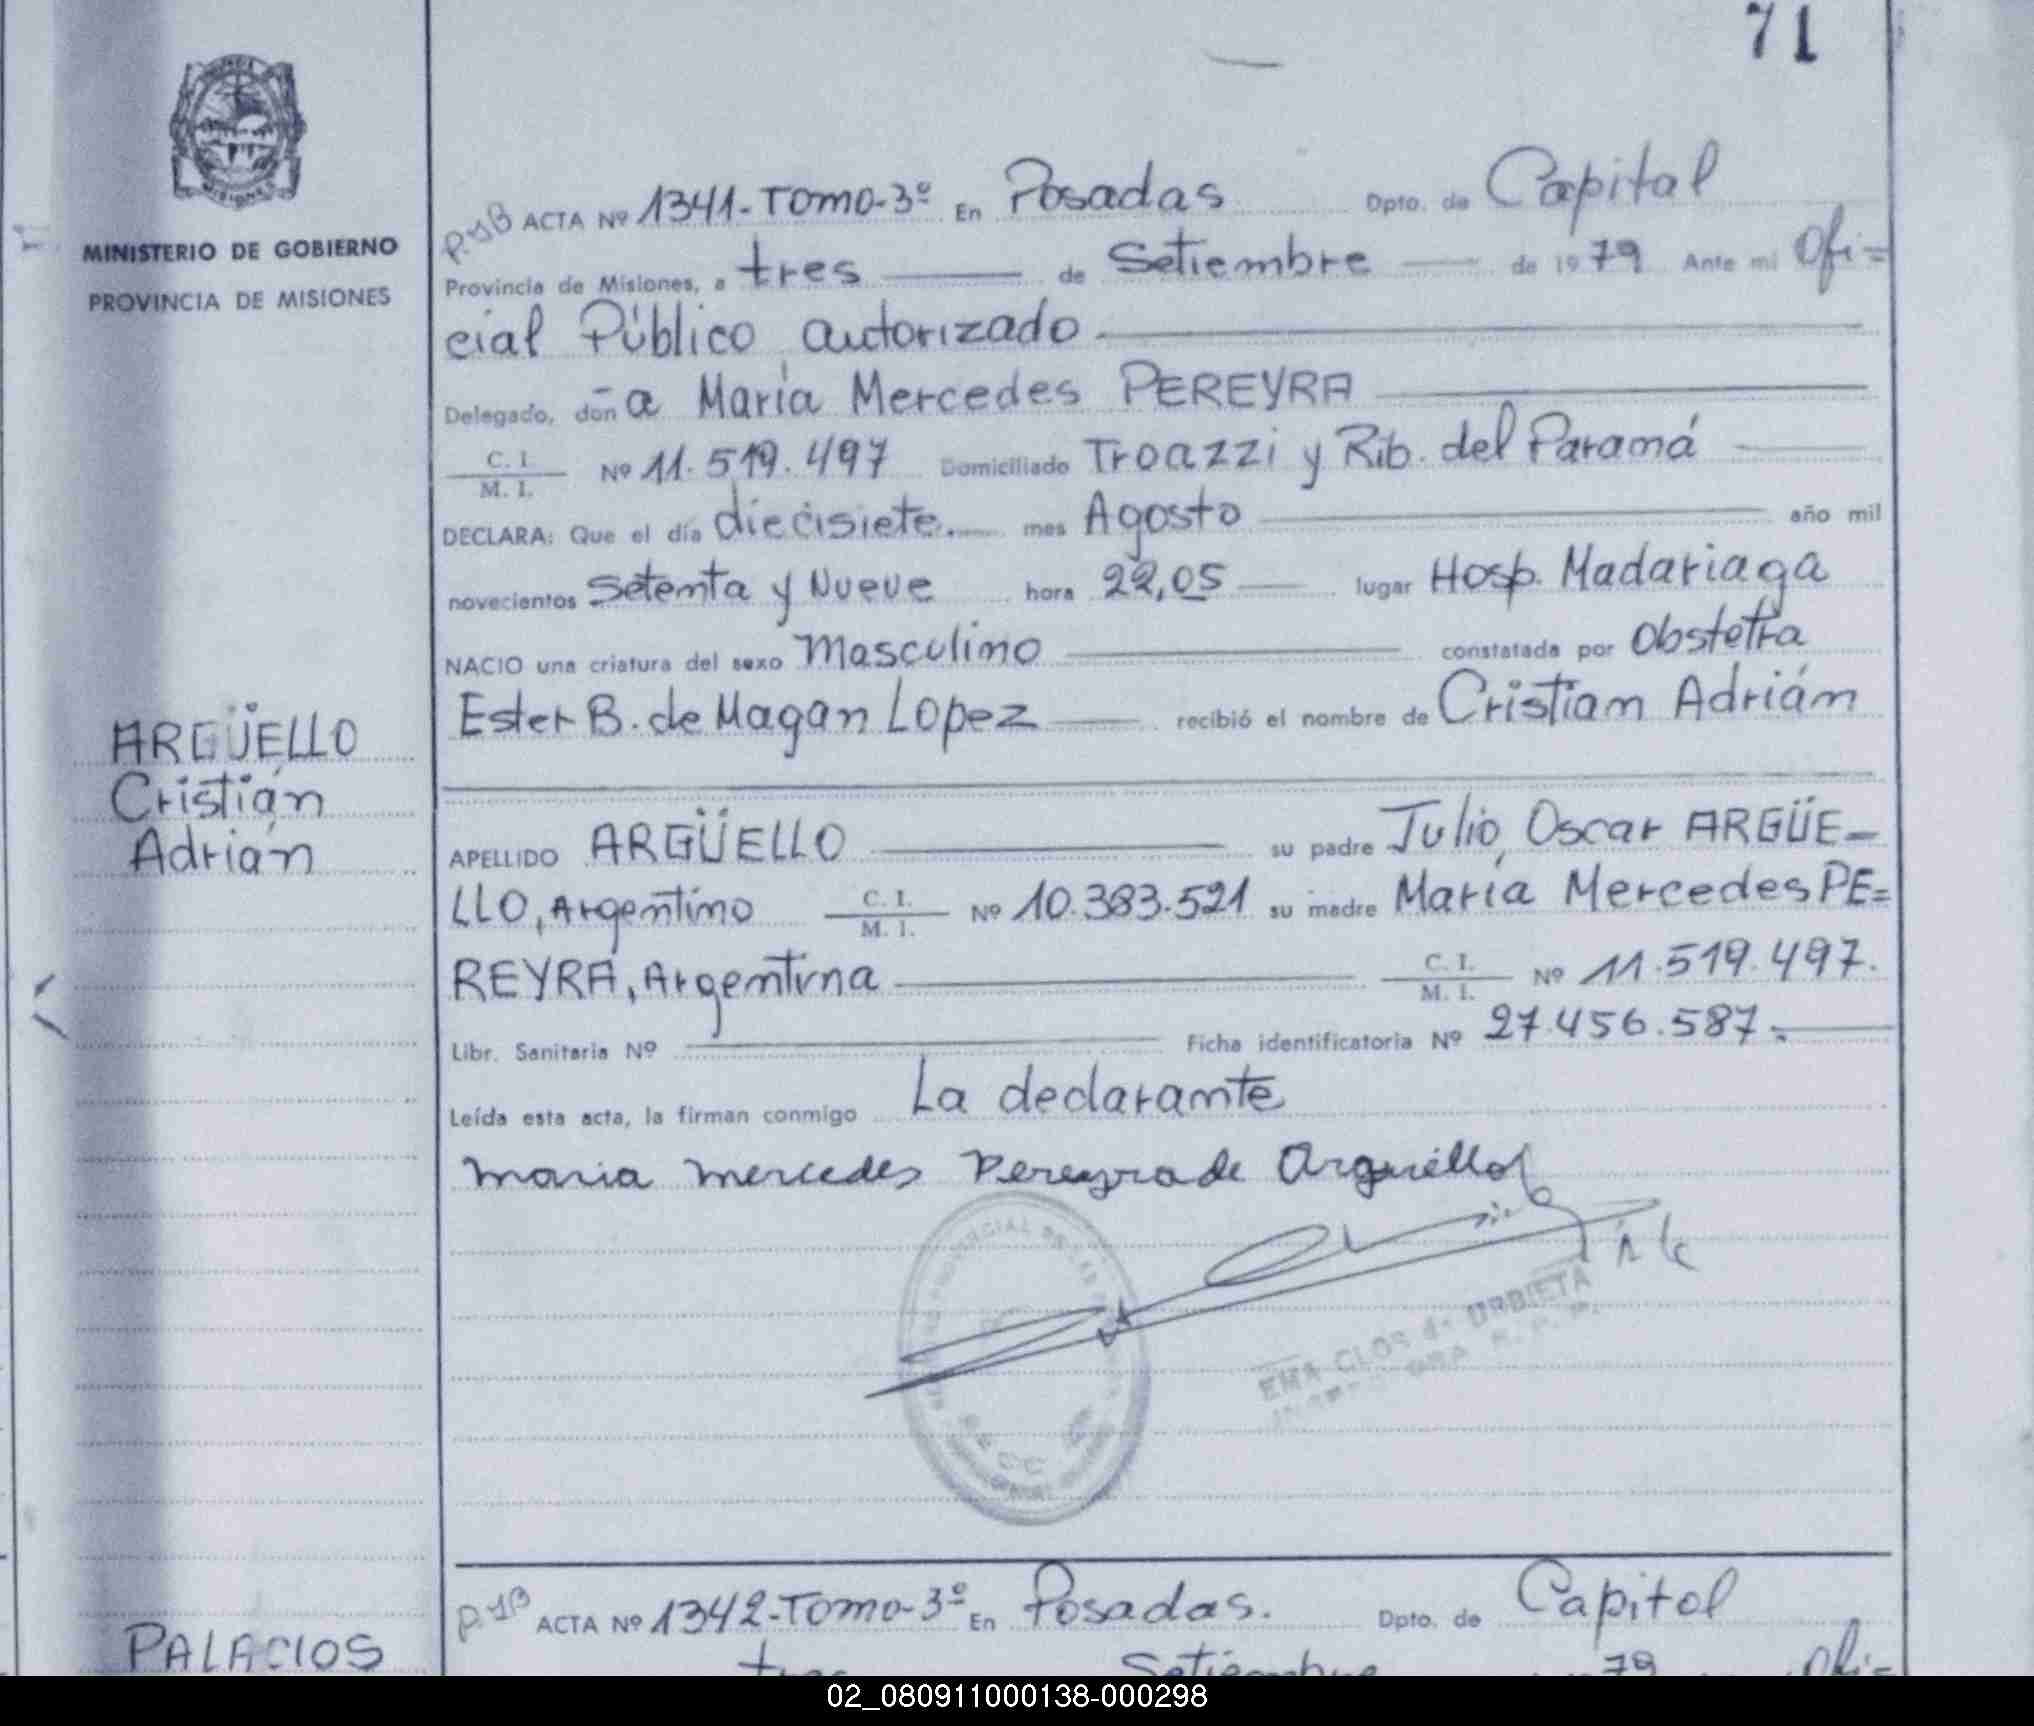 71
MINISTERIO DE GOBIERNO
PROVINCIA DE MISIONES
ACTA Nº 1341-Tomo-3º En Posadas Dpto. de Capital
Provincia de Misiones, a tres de Setiembre de 1979 Ante mi Ofi=
cial Público autorizado
Delegado, don~a María Mercedes PEREYRA
C. I.
M. I. Nº 11.519.497 Domiciliado Troazzi y Rib. del Paraná
DECLARA: Que el día diecisiete. mes Agosto año mil
novecientos Setenta y Nueve hora 22,05 lugar Hosp. Madariaga
NACIO una criatura del sexo Masculino constatada por Obstetra
Ester B. de Magan Lopez recibió el nombre de Cristian Adrián
ARGÜELLO
Cristián
Adrián
APELLIDO ARGÜELLO su padre Julio, Oscar ARGÜE-
LLO, Argentino C. I. M. I. Nº 10.383.521 su madre María Mercedes PE=
REYRA, Argentina C. I. M. I. Nº 11.519.497.
Libr. Sanitaria Nº Ficha identificatoria Nº 27.456.587.-
Leída esta acta, la firman conmigo La declarante
Maria Mercedes Pereyra de Arguello
EMA CLOS de URBIETA
ACTA Nº 1342-Tomo-3º En Posadas. Dpto. de Capital
PALACIOS
tres Setiembre 79 Ofi=
02_080911000138-000298